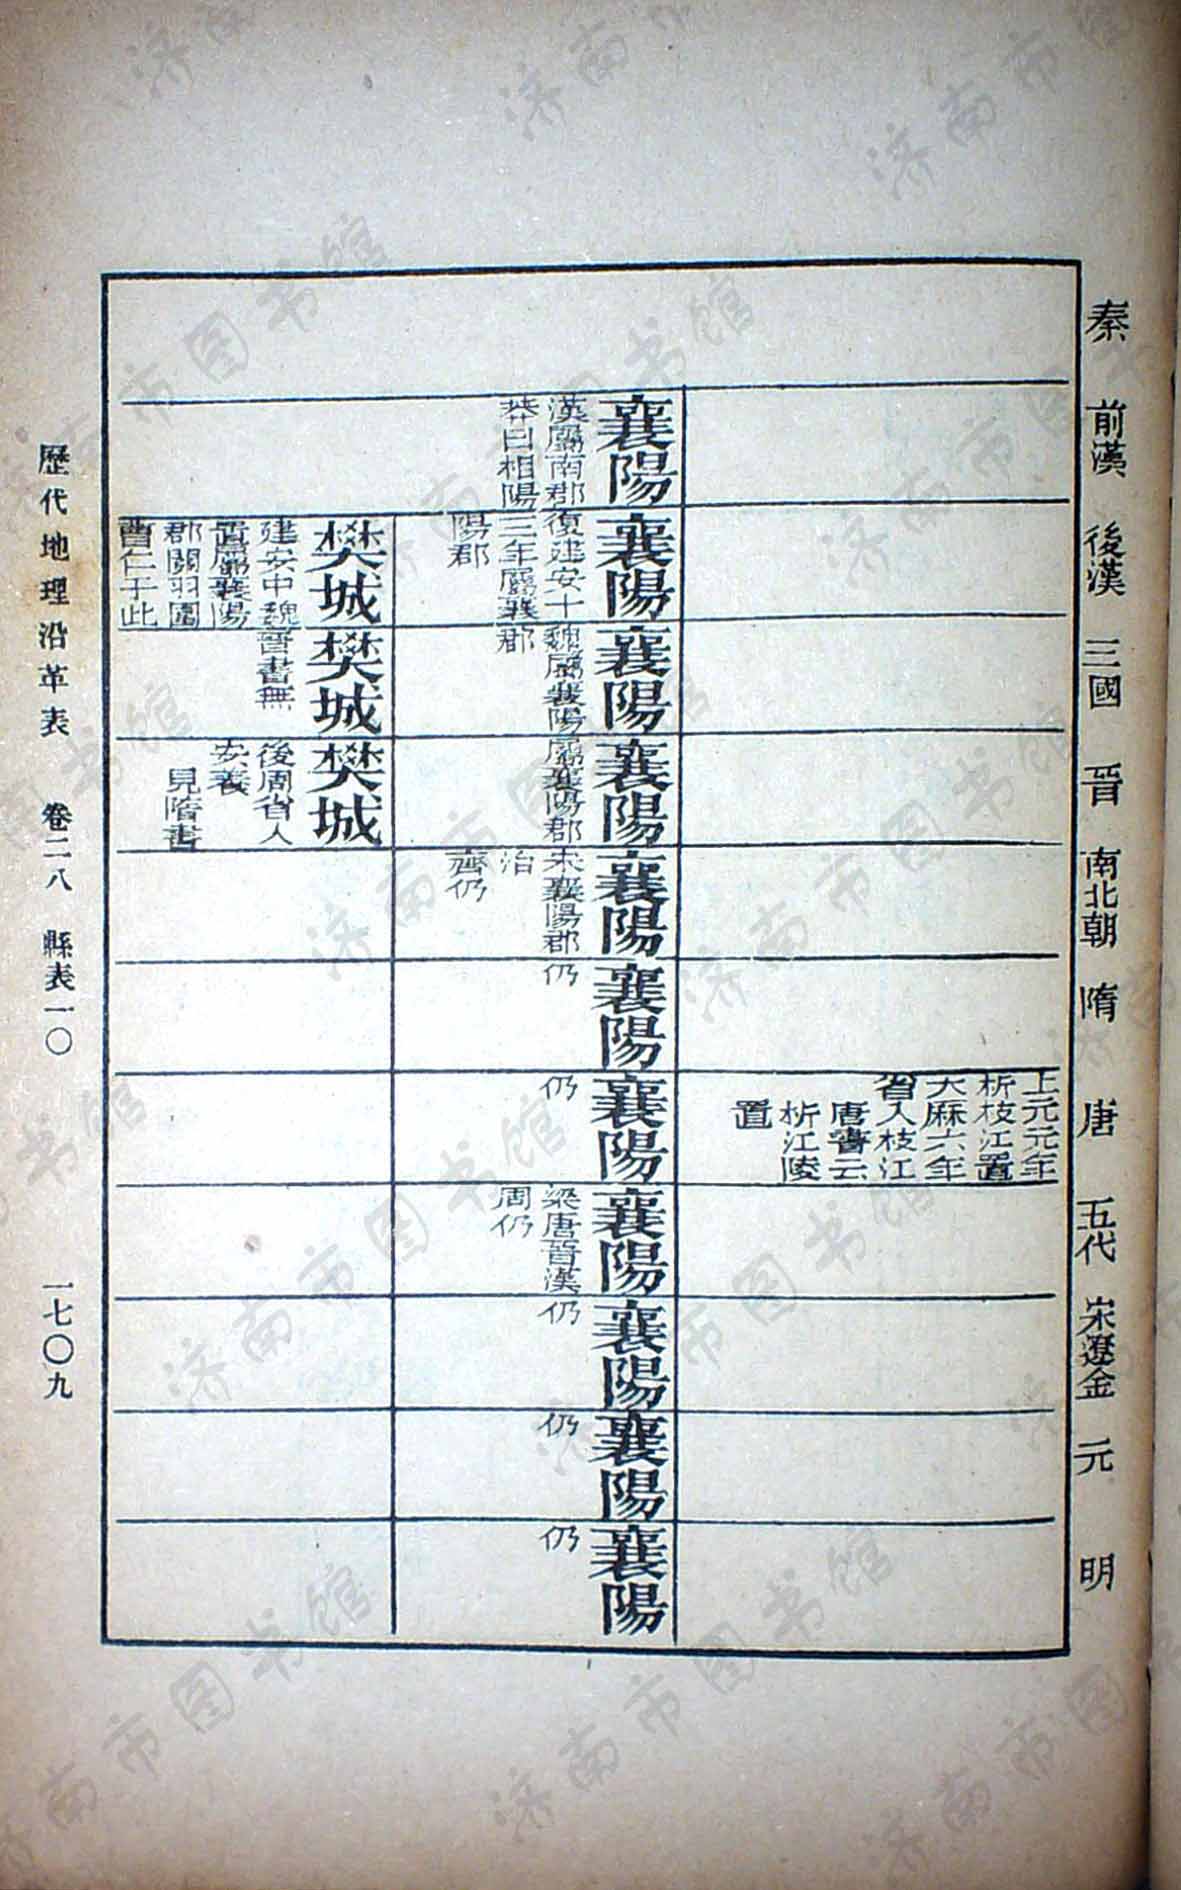 秦
前漢
後漢
三國
晉
南北朝
隋
唐
五代
宋遼金
元
明
上元元年
析枝江置
大厤六年
省入枝江
唐書云
析江陵
置
襄陽
漢屬南郡
莽曰相陽
襄陽
復建安十
三年屬襄
陽郡
襄陽
魏屬襄陽
郡
襄陽
屬襄陽郡
襄陽
宋襄陽郡
治
齊仍
襄陽
仍
襄陽
仍
襄陽
梁唐晉漢
周仍
襄陽
仍
襄陽
仍
襄陽
仍
樊城
建安中魏
置屬襄陽
郡關羽圍
曹仁于此
樊城
晉書無
樊城
後周省入
安養
見隋書
歷代地理沿革表 卷二八 縣表一〇 一七〇九
济南市图书馆